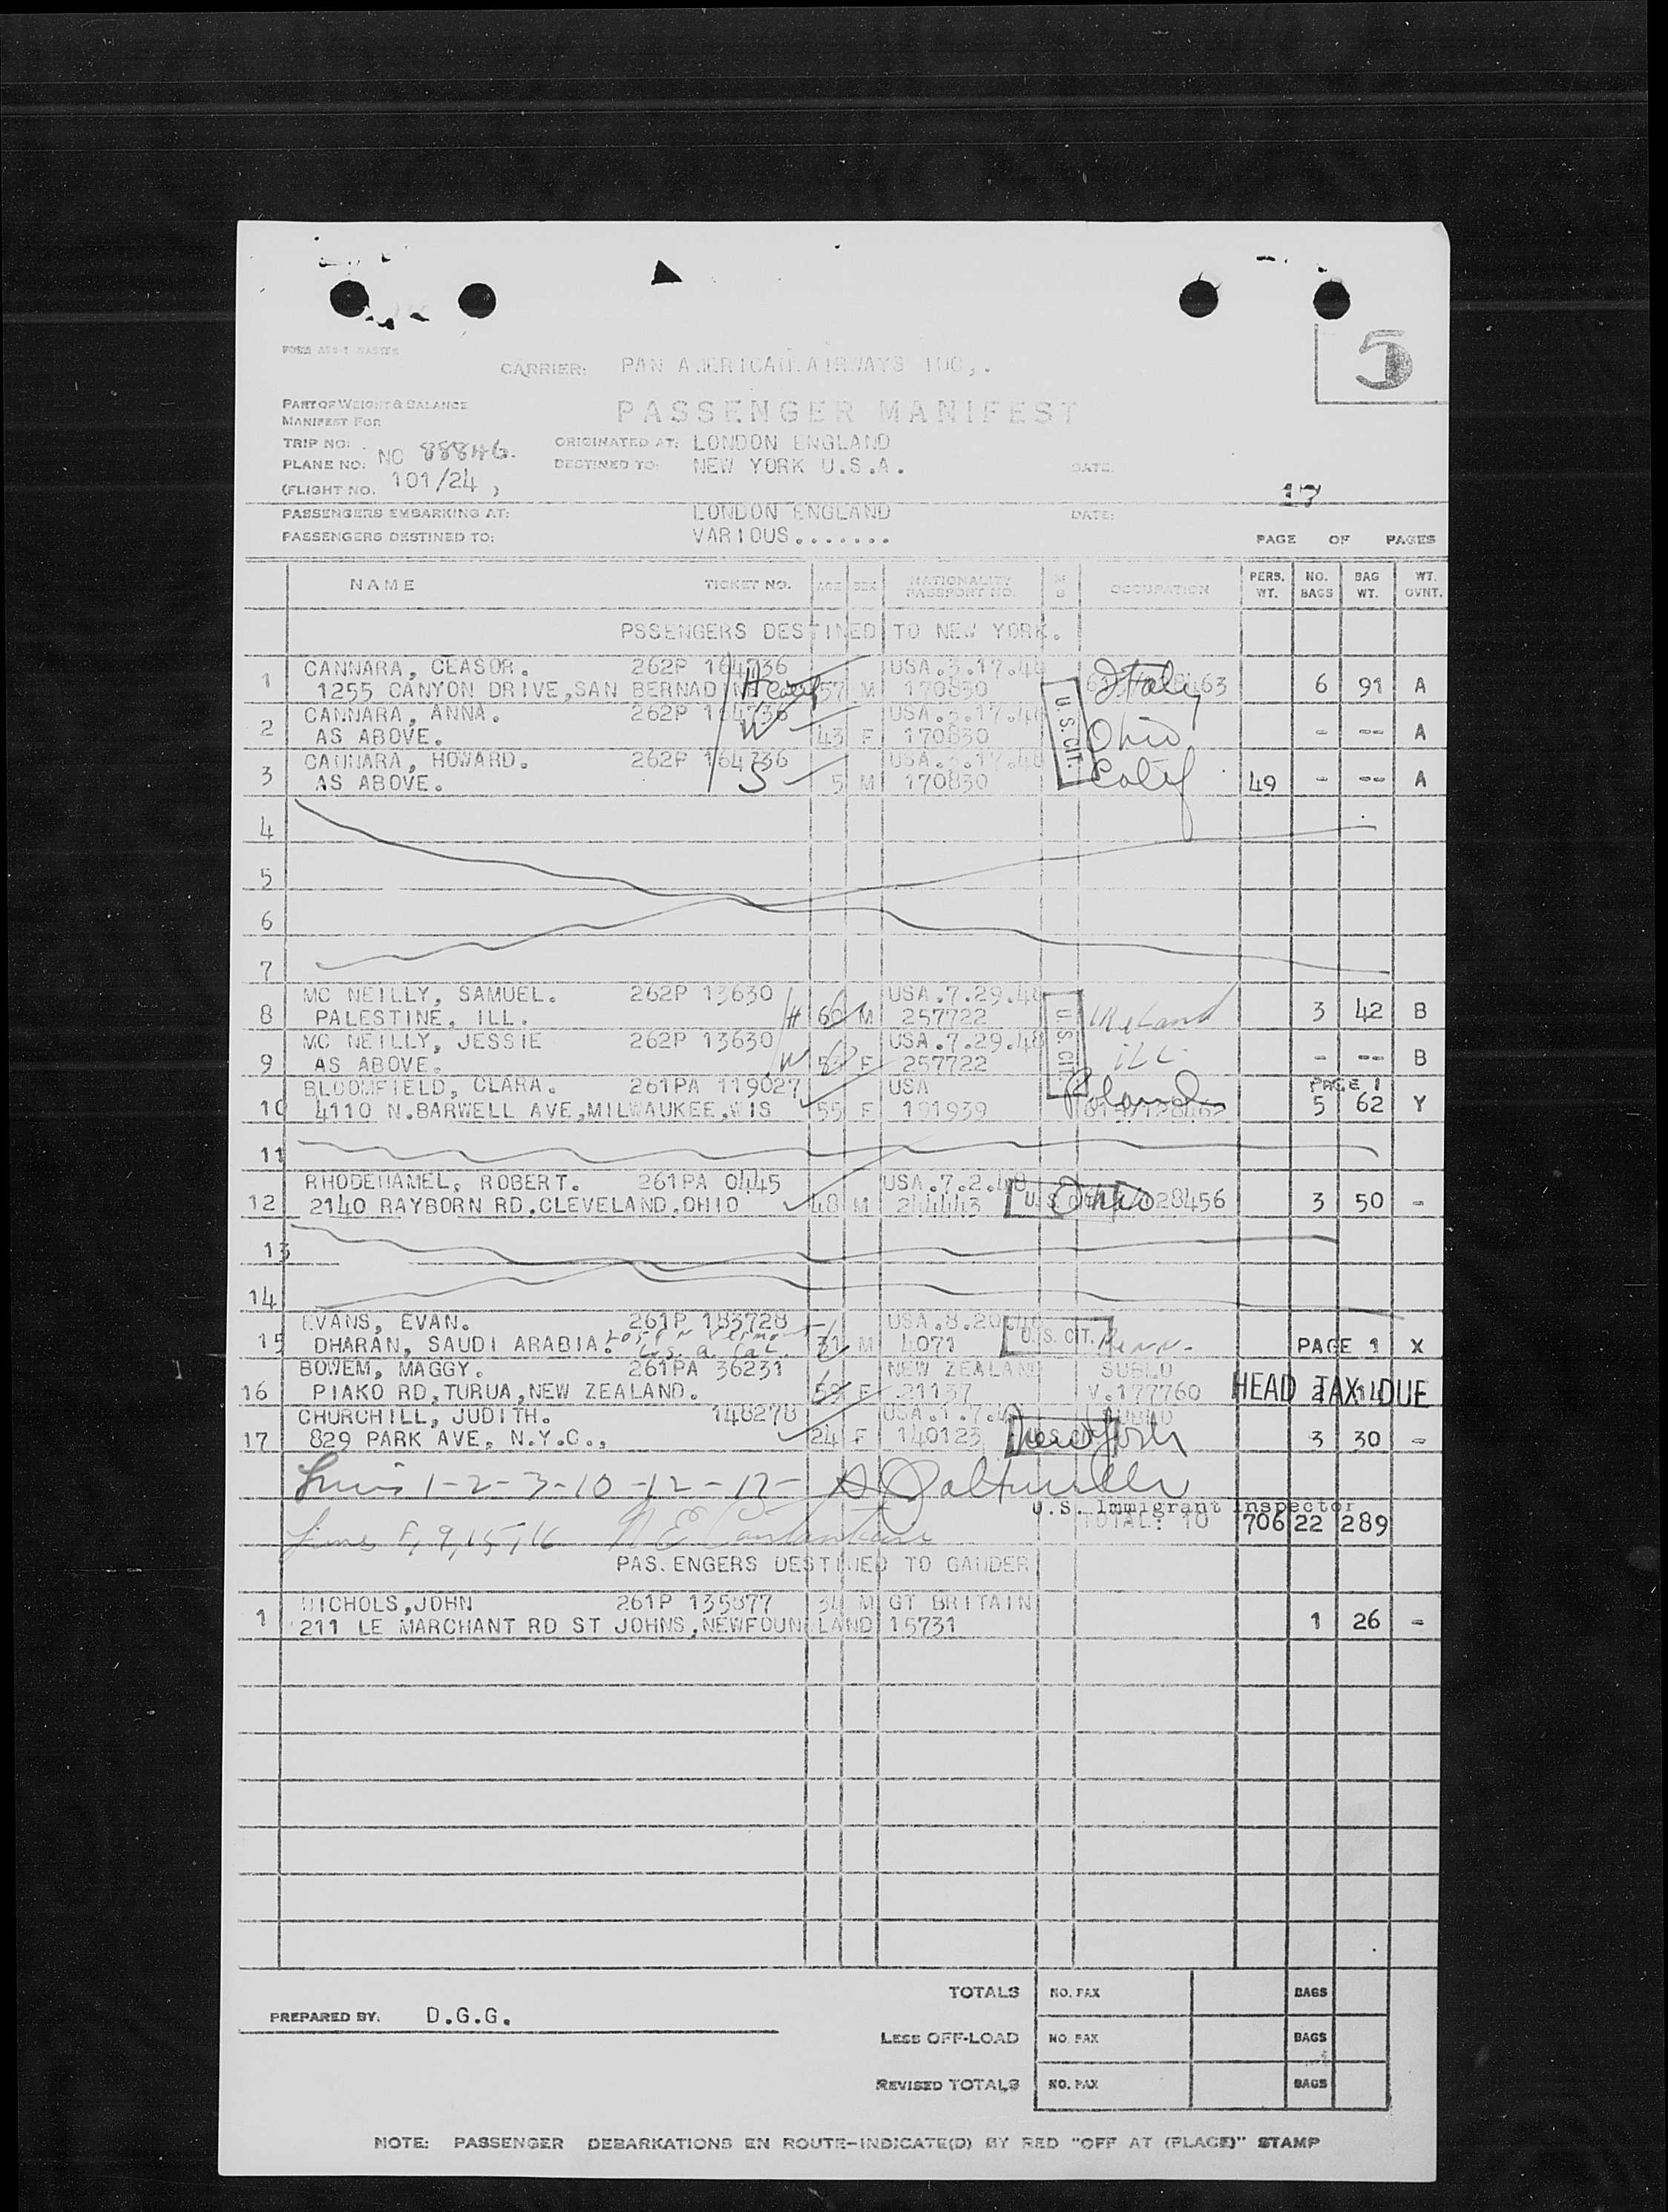 5
CARRIER: PAN AMERICAN AIRWAYS INC,.
PART OF WEIGHT & BALANCE
MANIFEST FOR
PASSENGER MANIFEST
TRIP NO:
PLANE NO: NC 88846.
(FLIGHT NO. 101/24 )
ORIGINATED AT: LONDON ENGLAND
DESTINED TO: NEW YORK U.S.A. DATE:
17
PASSENGERS EMBARKING AT: LONDON ENGLAND DATE:
PASSENGERS DESTINED TO: VARIOUS....... PAGE OF PAGES
NAME TICKET NO. AGE SEX NATIONALITY PASSPORT NO. OCCUPATION PERS. WT. NO. BAGS BAG WT. WT. GVNT.
PSSENGERS DESTINED TO NEW YORK.
CANNARA, CEASOR. 262P 164736 USA.3.17.48 Italy
1 1255 CANYON DRIVE,SAN BERNADINE 57 M 170830 6 91 A
CANNARA, ANNA. 262P 164736 USA.3.17.48 U.S.CIT.
2 AS ABOVE. W 43 F 170830 Ohio - -- A
CANNARA, HOWARD. 262P 164736 USA.3.17.48
3 AS ABOVE. S 5 M 170830 49 - -- A
4
5
6
7
MC NEILLY, SAMUEL. 262P 13630 USA.7.29.48 U.S.CIT.
8 PALESTINE, ILL. H 60 M 257722 Ireland 3 42 B
MC NEILLY, JESSIE 262P 13630 USA.7.29.48
9 AS ABOVE. W F 257722 ILL - -- B
BLOOMFIELD, CLARA. 261PA 119027 USA Poland PAGE 1
10 4110 N.BARWELL AVE,MILWAUKEE,WIS 55 F 191939 5 62 Y
11
RHODEHAMEL, ROBERT. 261PA 0445 USA.7.2.48
12 2140 RAYBORN RD.CLEVELAND.OHIO 48 M 244443 U.S.CIT. Ohio 28456 3 50 -
13
14
EVANS, EVAN. 261P 183728 USA.8.20.48
15 DHARAN, SAUDI ARABIA. 31 M 4071 U.S.CIT. Penn. PAGE 1 X
BOWEM, MAGGY. 261PA 36231 NEW ZEALAND
16 PIAKO RD,TURUA,NEW ZEALAND. 59 F 21137 V.177760 HEAD TAX DUE
CHURCHILL, JUDITH. 148278
17 829 PARK AVE, N.Y.C., 24 F 140123 New York 3 30 -
Lines 1-2-3-10-12-17-
U.S. Immigrant Inspector
TOTAL: 10 706 22 289
Lines 8,9,15,16
PAS.ENGERS DESTINED TO GANDER
NICHOLS,JOHN 261P 135877 34 M GT BRITAIN
1 211 LE MARCHANT RD ST JOHNS,NEWFOUNDLAND 15731 1 26 -
TOTALS NO. PAX BAGS
PREPARED BY: D.G.G.
LESS OFF-LOAD NO. PAX BAGS
REVISED TOTALS NO. PAX BAGS
NOTE: PASSENGER DEBARKATIONS EN ROUTE-INDICATE(D) BY RED "OFF AT (PLACE)" STAMP